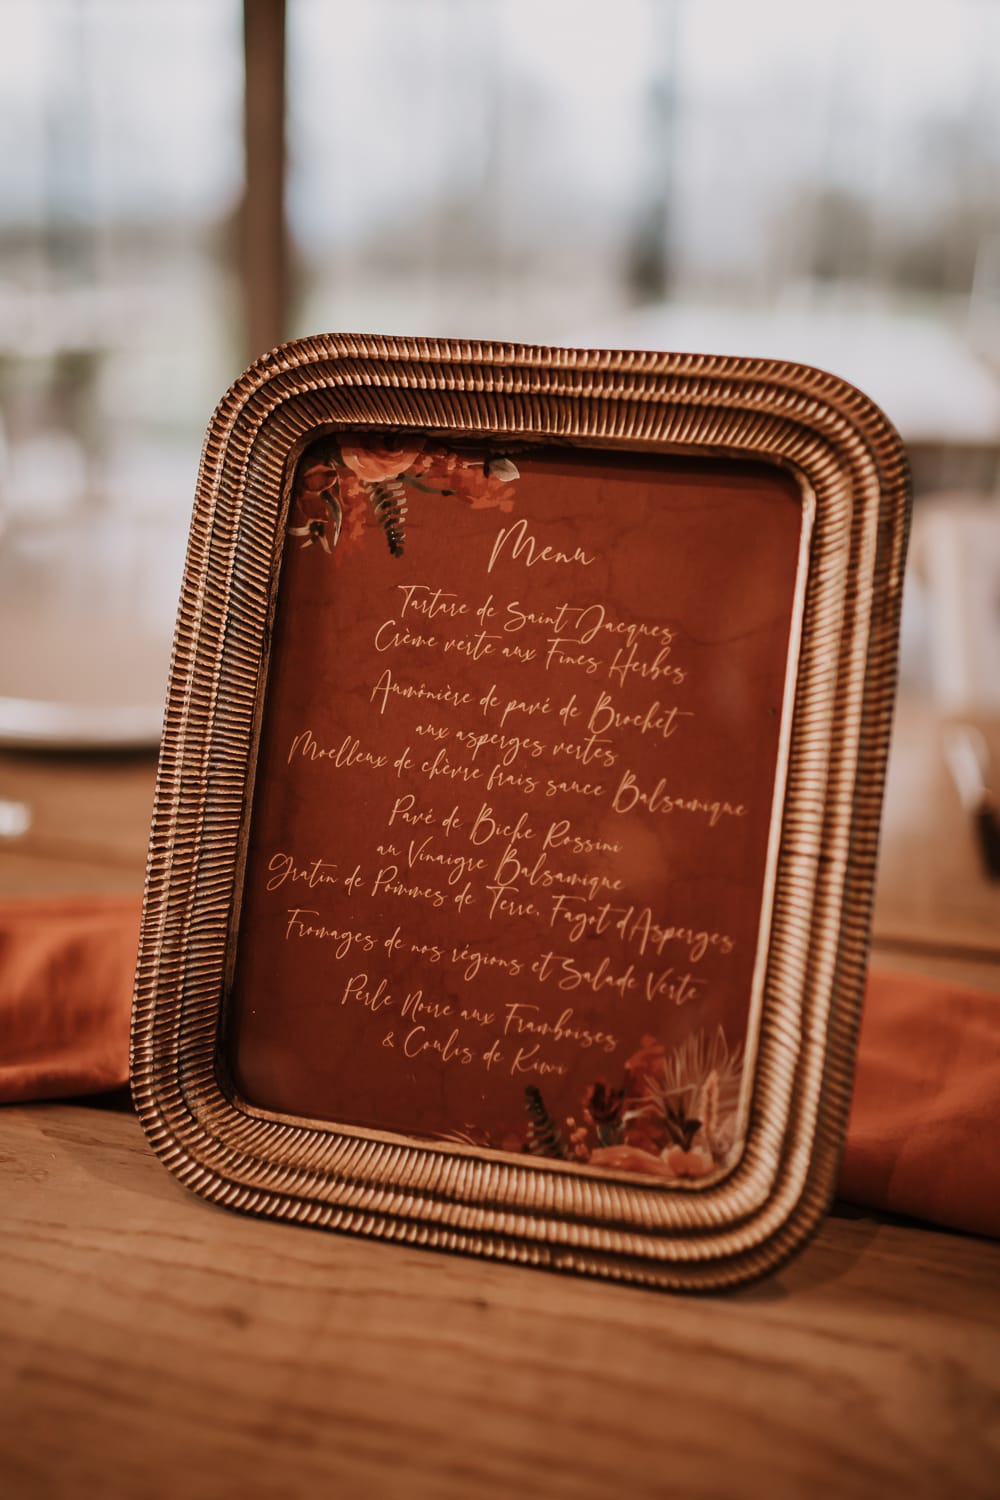 Menu
Tartare de Saint Jacques
Crème verte aux Fines Herbes
Aumônière de pavé de Brochet
aux asperges vertes
Moelleux de chèvre frais sauce Balsamique
Pavé de Biche Rossini
au Vinaigre Balsamique
Gratin de Pommes de Terre, Fagot d'Asperges
Fromages de nos régions et Salade Verte
Perle Noire aux Framboises
& Coulis de Kiwi